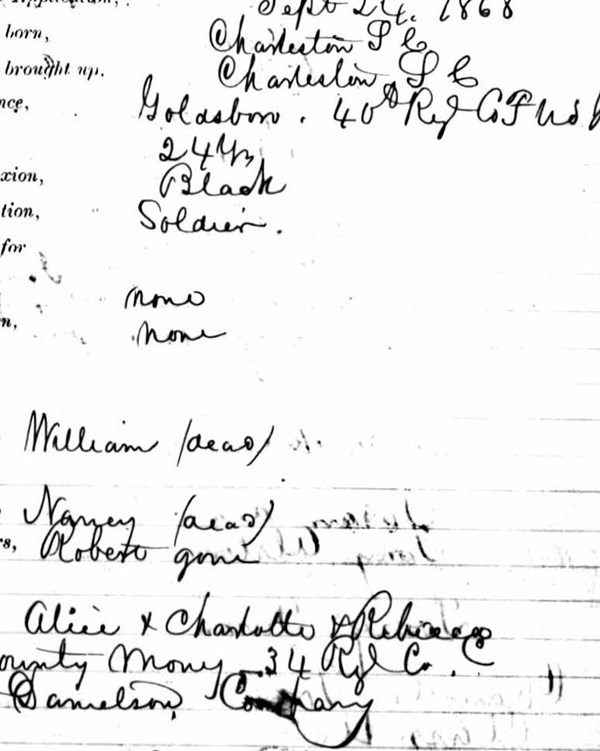 Application, Sept 24. 1868
born, Charleston S C
brought up. Charleston S C
Goldsboro. 40th Reg Co F U S
24 Yrs
xion, Black
tion, Soldier.
for
none
n, none
William (dead)
Nancy (dead)
rs, Robert gone
Alice & Charlotte & Rebecca
ounty Money 34 Rgt Co. C
Danielson Company